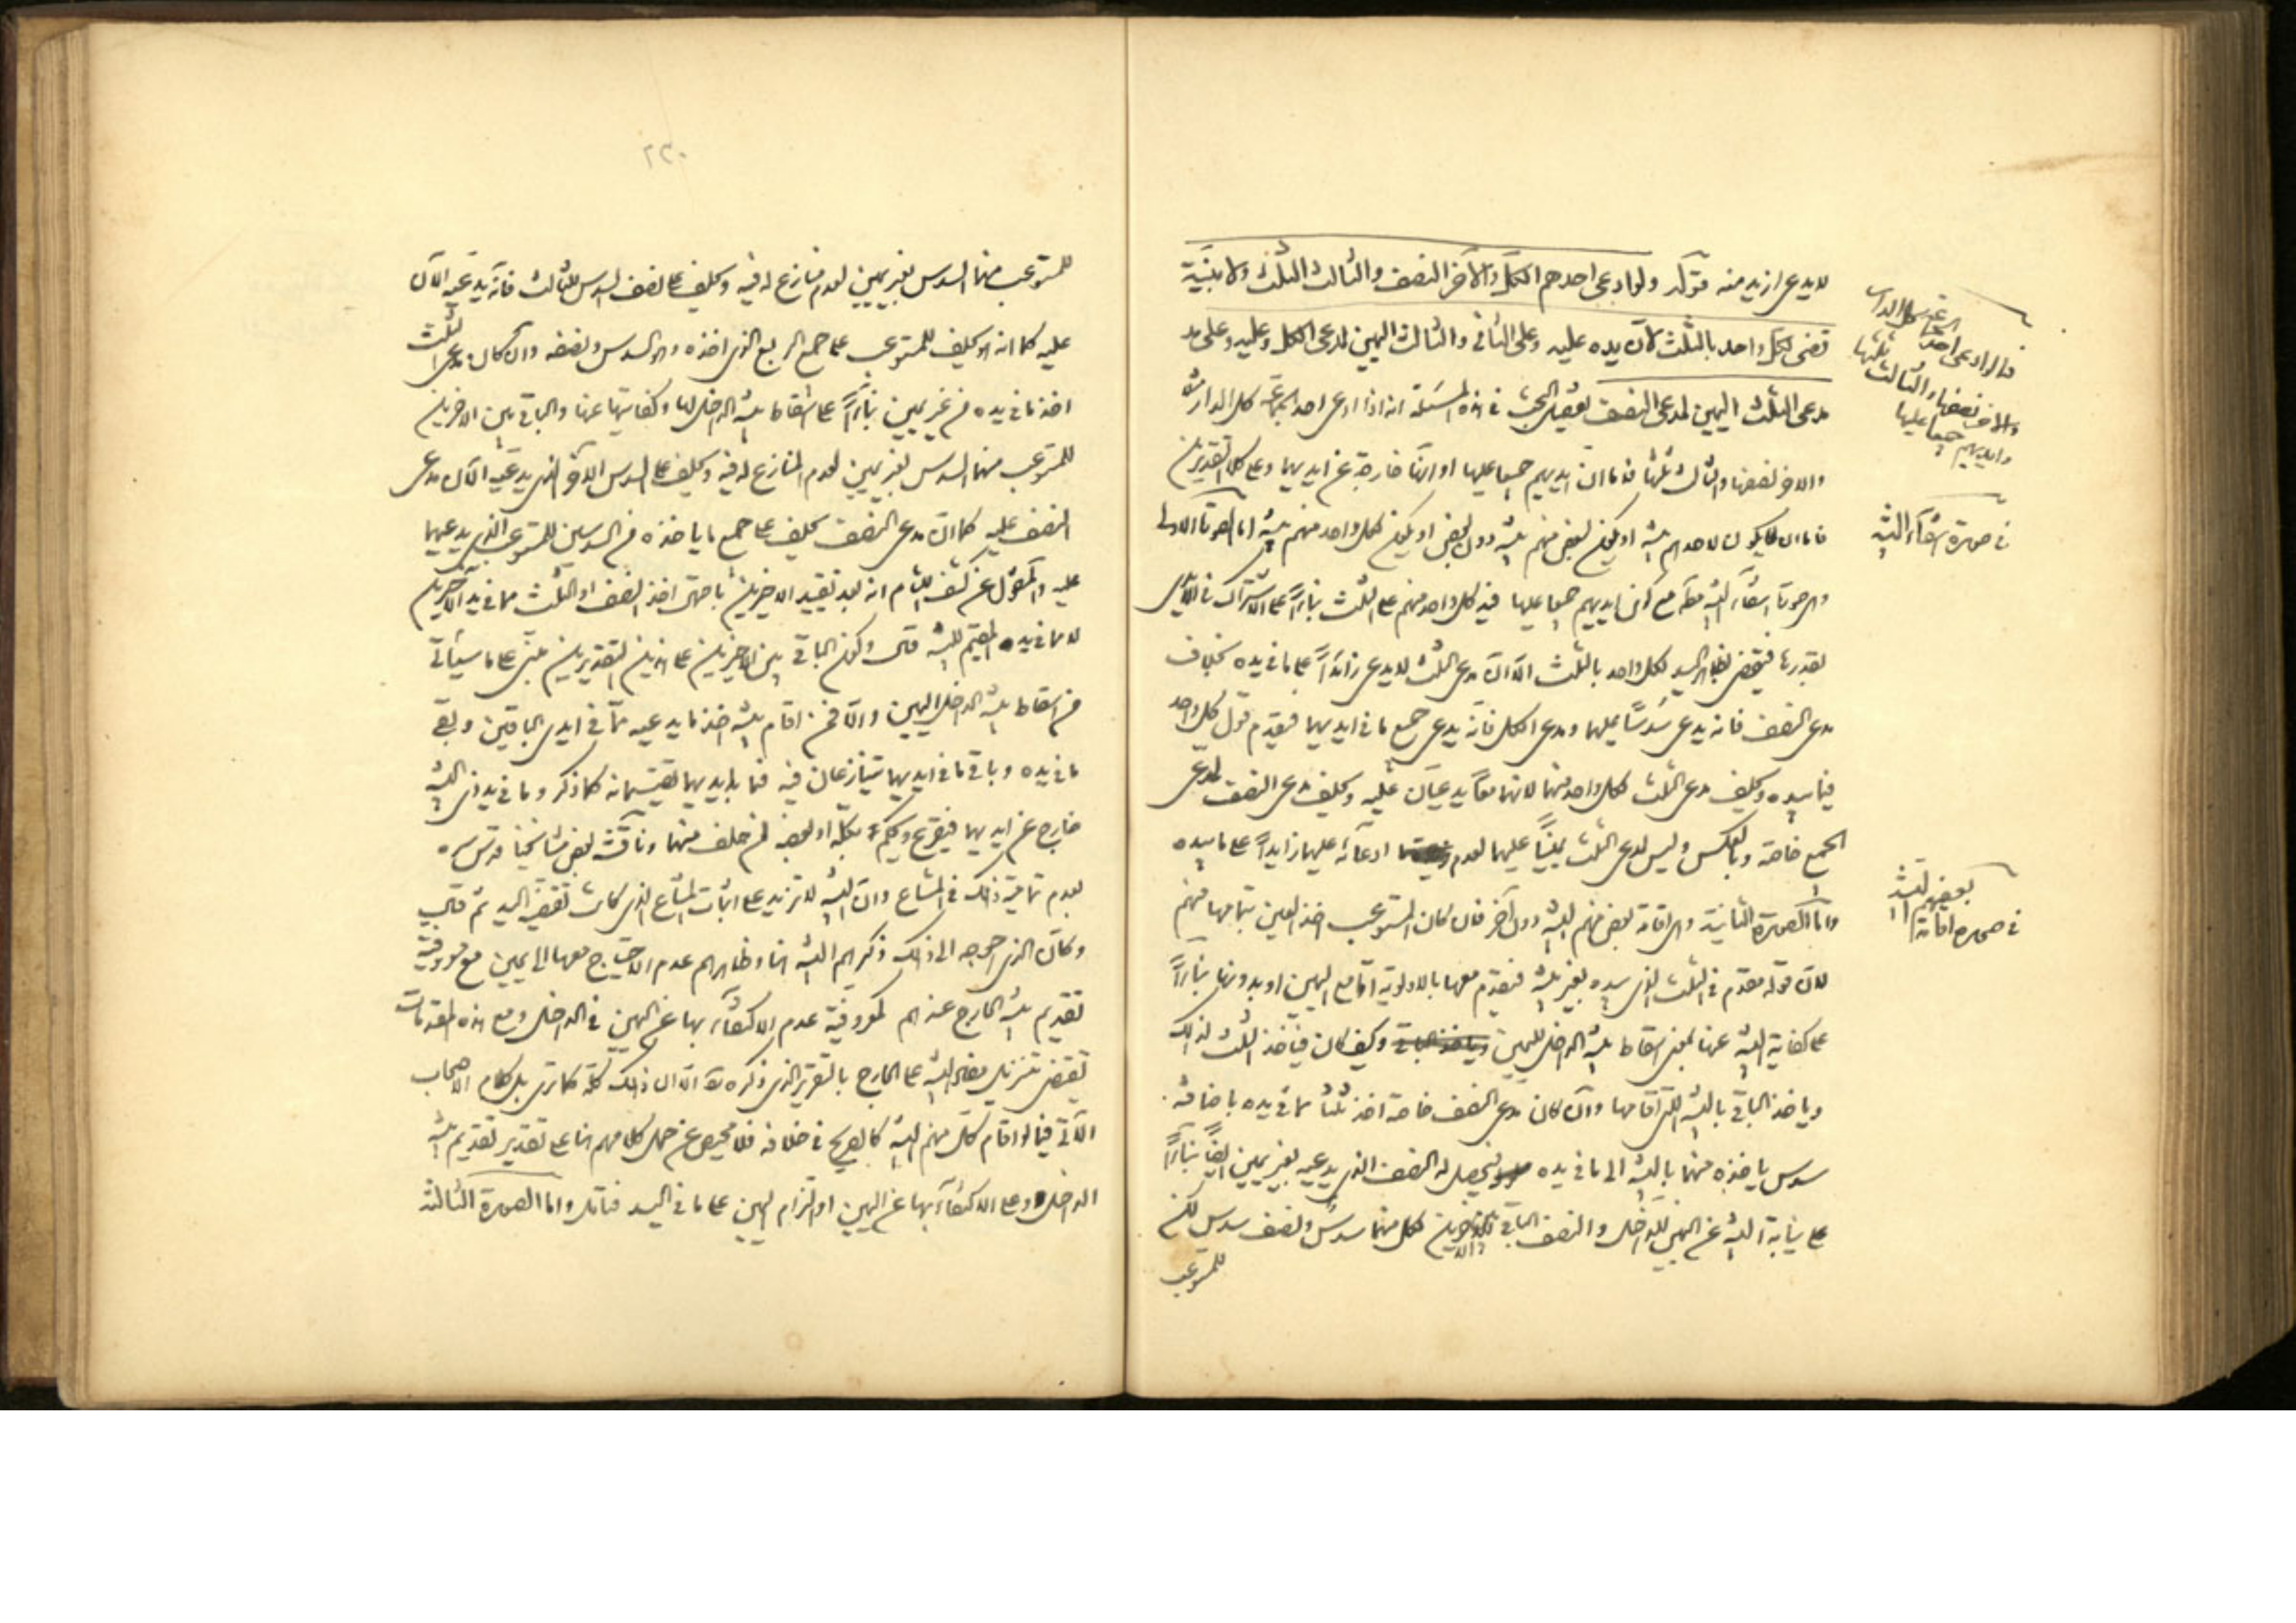 لا يدعى ازيد منه فتوكد ولو ادعى احدهم الكل والآخر النصف والثالث الثلث ولا بينة
قضى لكل واحد بالثلث لان يده عليه وعلى الثانى والثالث اليمين لمدعى الكل وعليه وعلى مد
مدعى الثلث اليمين لمدعى النصف تفصيل البحث فى هذه المسئلة انه اذا ادعى احد كل الدار
والاخر نصفها والثالث ثلثها فاما ان ايديهم جميعا عليها او انها خارجة عن ايديهما وعلى كلا التقديرين
فاما ان لا يكون لاحدهم بينة او يكون لبعض منهم بينة دون بعض او يكون لكل واحد منهم بينة اما الصورة الاولى
وهى صورة انتفاء البينة مع كون ايديهم جميعا عليها فيد كل واحد منهم على الثلث بناءً على الاشتراك فى
فيقضى لكل واحد بالثلث الا ان مدعى الثلث لا يدعى زائداً على ما فى يده بخلاف
مدعى النصف فانه يدعى سدسًا عليهما ومدعى الكل فانه يدعى جميع ما فى ايديهما فيقدم قول كل واحد
فيما بيده ويحلف مدعى الثلث لكل واحد منهما لانهما معاً يدعيان عليه ويحلف مدعى النصف لمدعى
الجميع خاصة وبالعكس وليس لمدعى الثلث يمينًا عليهما لعدم ادعائه عليهما زايداً على ما بيده
واما الصورة الثانية وهى اقامة بعض منهم البينة دون آخر فان كان المستوعب اخذ العين بتمامها منهم
لان قوله مقدم فى الثلث الذى بيده بغير بينة فيقدم معها بالاولوية اما مع اليمين او بدونها بناءً
على كفاية البينة عنها بمعنى اسقاط بينة الداخل لليمين وكيف كان فياخذ الثلث لذلك
وياخذ الباقى بالبينة التى اقامها وان كان مدعى النصف خاصة اخذ ثلثًا مما فى يده باضافة
سدس ياخذه منهما بالبينة الى ما فى يده فيحصل له النصف الذى يدعيه بغير يمين ايضًا بناءً
على نيابة البينة عن اليمين للداخل والنصف الباقى للاخرين لكل منهما سدس ونصف سدس لكن
للمستوعب
فلو ادعى احدهم كل الدار
والآخر نصفها والثالث ثلثها
وايديهم جميعا عليها
فى صورة انتفاء البينة
فى صورة اقامة بعضهم البينة
٢٣٠
للمستوعب منهما السدس بغير يمين لعدم منازع له فيه ويحلف على نصف السدس للثالث فانه يدعيه الآن
عليه كما انه يحلف للمستوعب على جميع الربع الذى اخذه وهو السدس ونصفه وان كان مدعى الثلث
اخذ ما فى يده من غير يمين بناءً على اسقاط بينة الداخل لها وكفايتها عنها والباقى بين الاخرين
للمستوعب منهما السدس بغير يمين لعدم المنازع له فيه ويحلف على السدس الآخر الذى يدعيه الآن مدعى
النصف عليه كما ان مدعى النصف يحلف على جميع ما ياخذه من السدسين للمستوعب الذى يدعيهما
عليه والمنقول عن كشف اللثام انه بعد تقييد الاخرين باحتمال اخذ النصف او الثلث مما فى يد الاخرين
لا مما فى يده المقيم للبينة قال وكون الباقى بين الاخرين على هذين التقديرين مبنى على ما سيأتى
من اسقاط بينة الداخل اليمين والا فمن اقام بينة اخذ ما يدعيه مما فى ايدى الباقين وبقى
ما فى يده وباقى ما فى ايديهما يتنازعان فيه فما بايديهما يقتسمانه كما ذكر وما فى يد ذى البينة
خارج عن ايديهما فيقرع ويحكم بكله او بعضه لمن حلف منهما وناقشه بعض مشايخنا قدس سره
بعدم تمامية ذلك فى المشاع وان البينة لا تزيد على اثبات المشاع الذى كانت تقتضيه اليد ثم قال
وكان الذى احوجه الى ذلك ذكرهم البينة هنا وظاهرهم عدم الاحتياج معها الى يمين مع معروفية
تقديم بينة الخارج عندهم كمعروفية عدم الاكتفاء بها عن اليمين فى الداخل ومع هذه المقدمات
يقتضى تنزيل مقام البينة على الخارج بالتقرير الذى ذكره الا ان ذلك كله كما ترى بل كلام الاصحاب
الآتى فيما لو اقام كل منهم البينة كالصريح فى خلافه فلا محيص عن حمل كلامهم هنا على تقدير تقديم بينة
الداخل وعلى الاكتفاء بها عن اليمين او التزام اليمين على ما فى اليد فتامل واما الصورة الثالثة